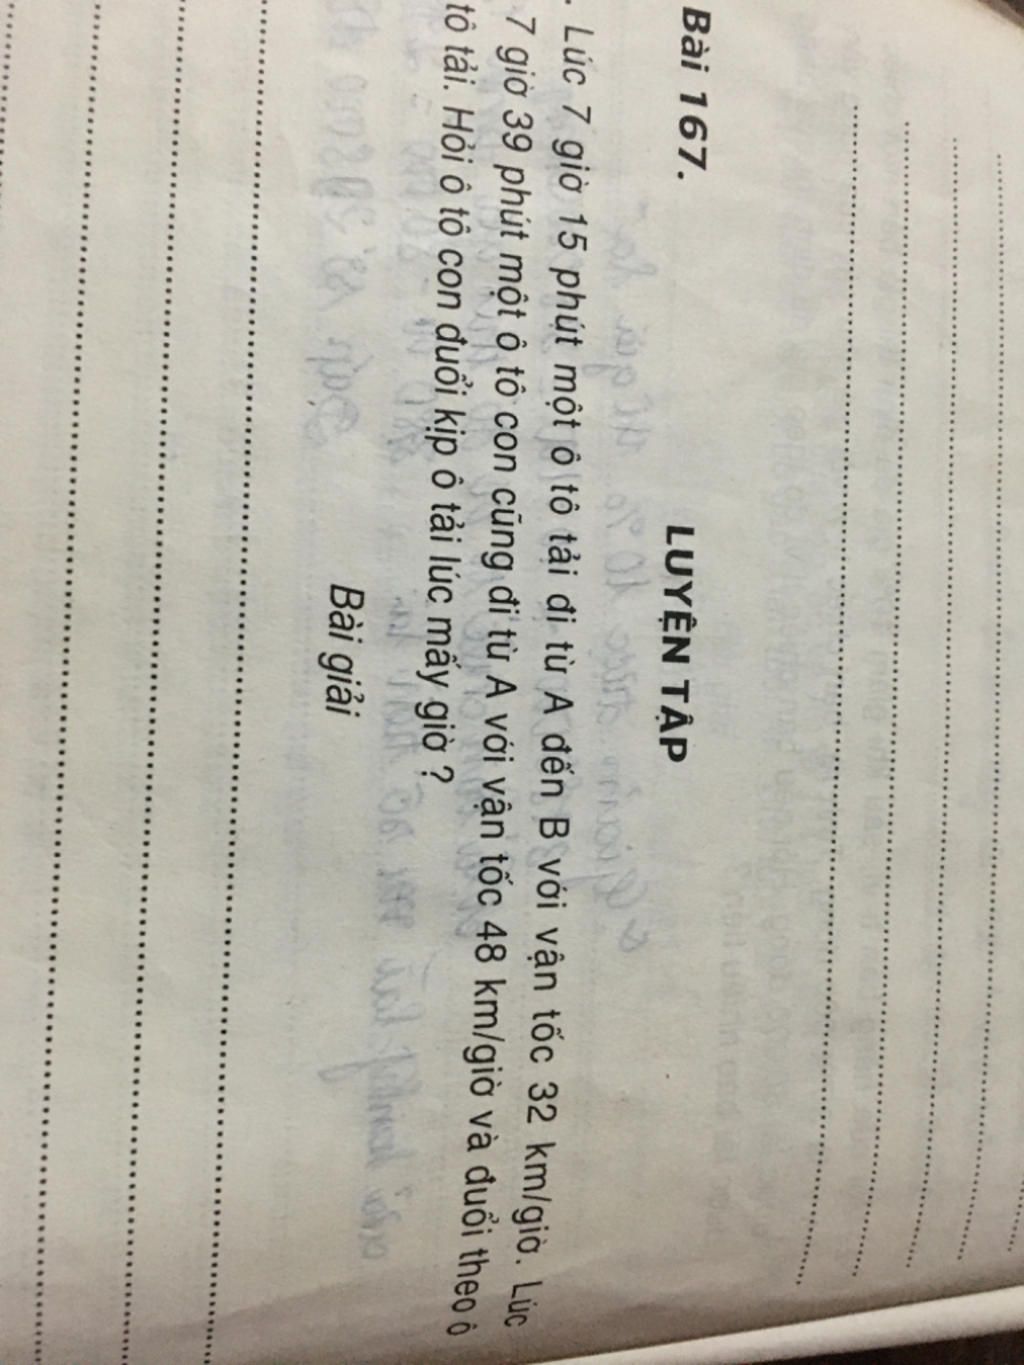 Bài 167.
LUYỆN TẬP
. Lúc 7 giờ 15 phút một ô tô tải đi từ A đến B với vận tốc 32 km/giờ. Lúc
7 giờ 39 phút một ô tô con cũng đi từ A với vận tốc 48 km/giờ và đuổi theo ô
tô tải. Hỏi ô tô con đuổi kịp ô tải lúc mấy giờ ?
Bài giải